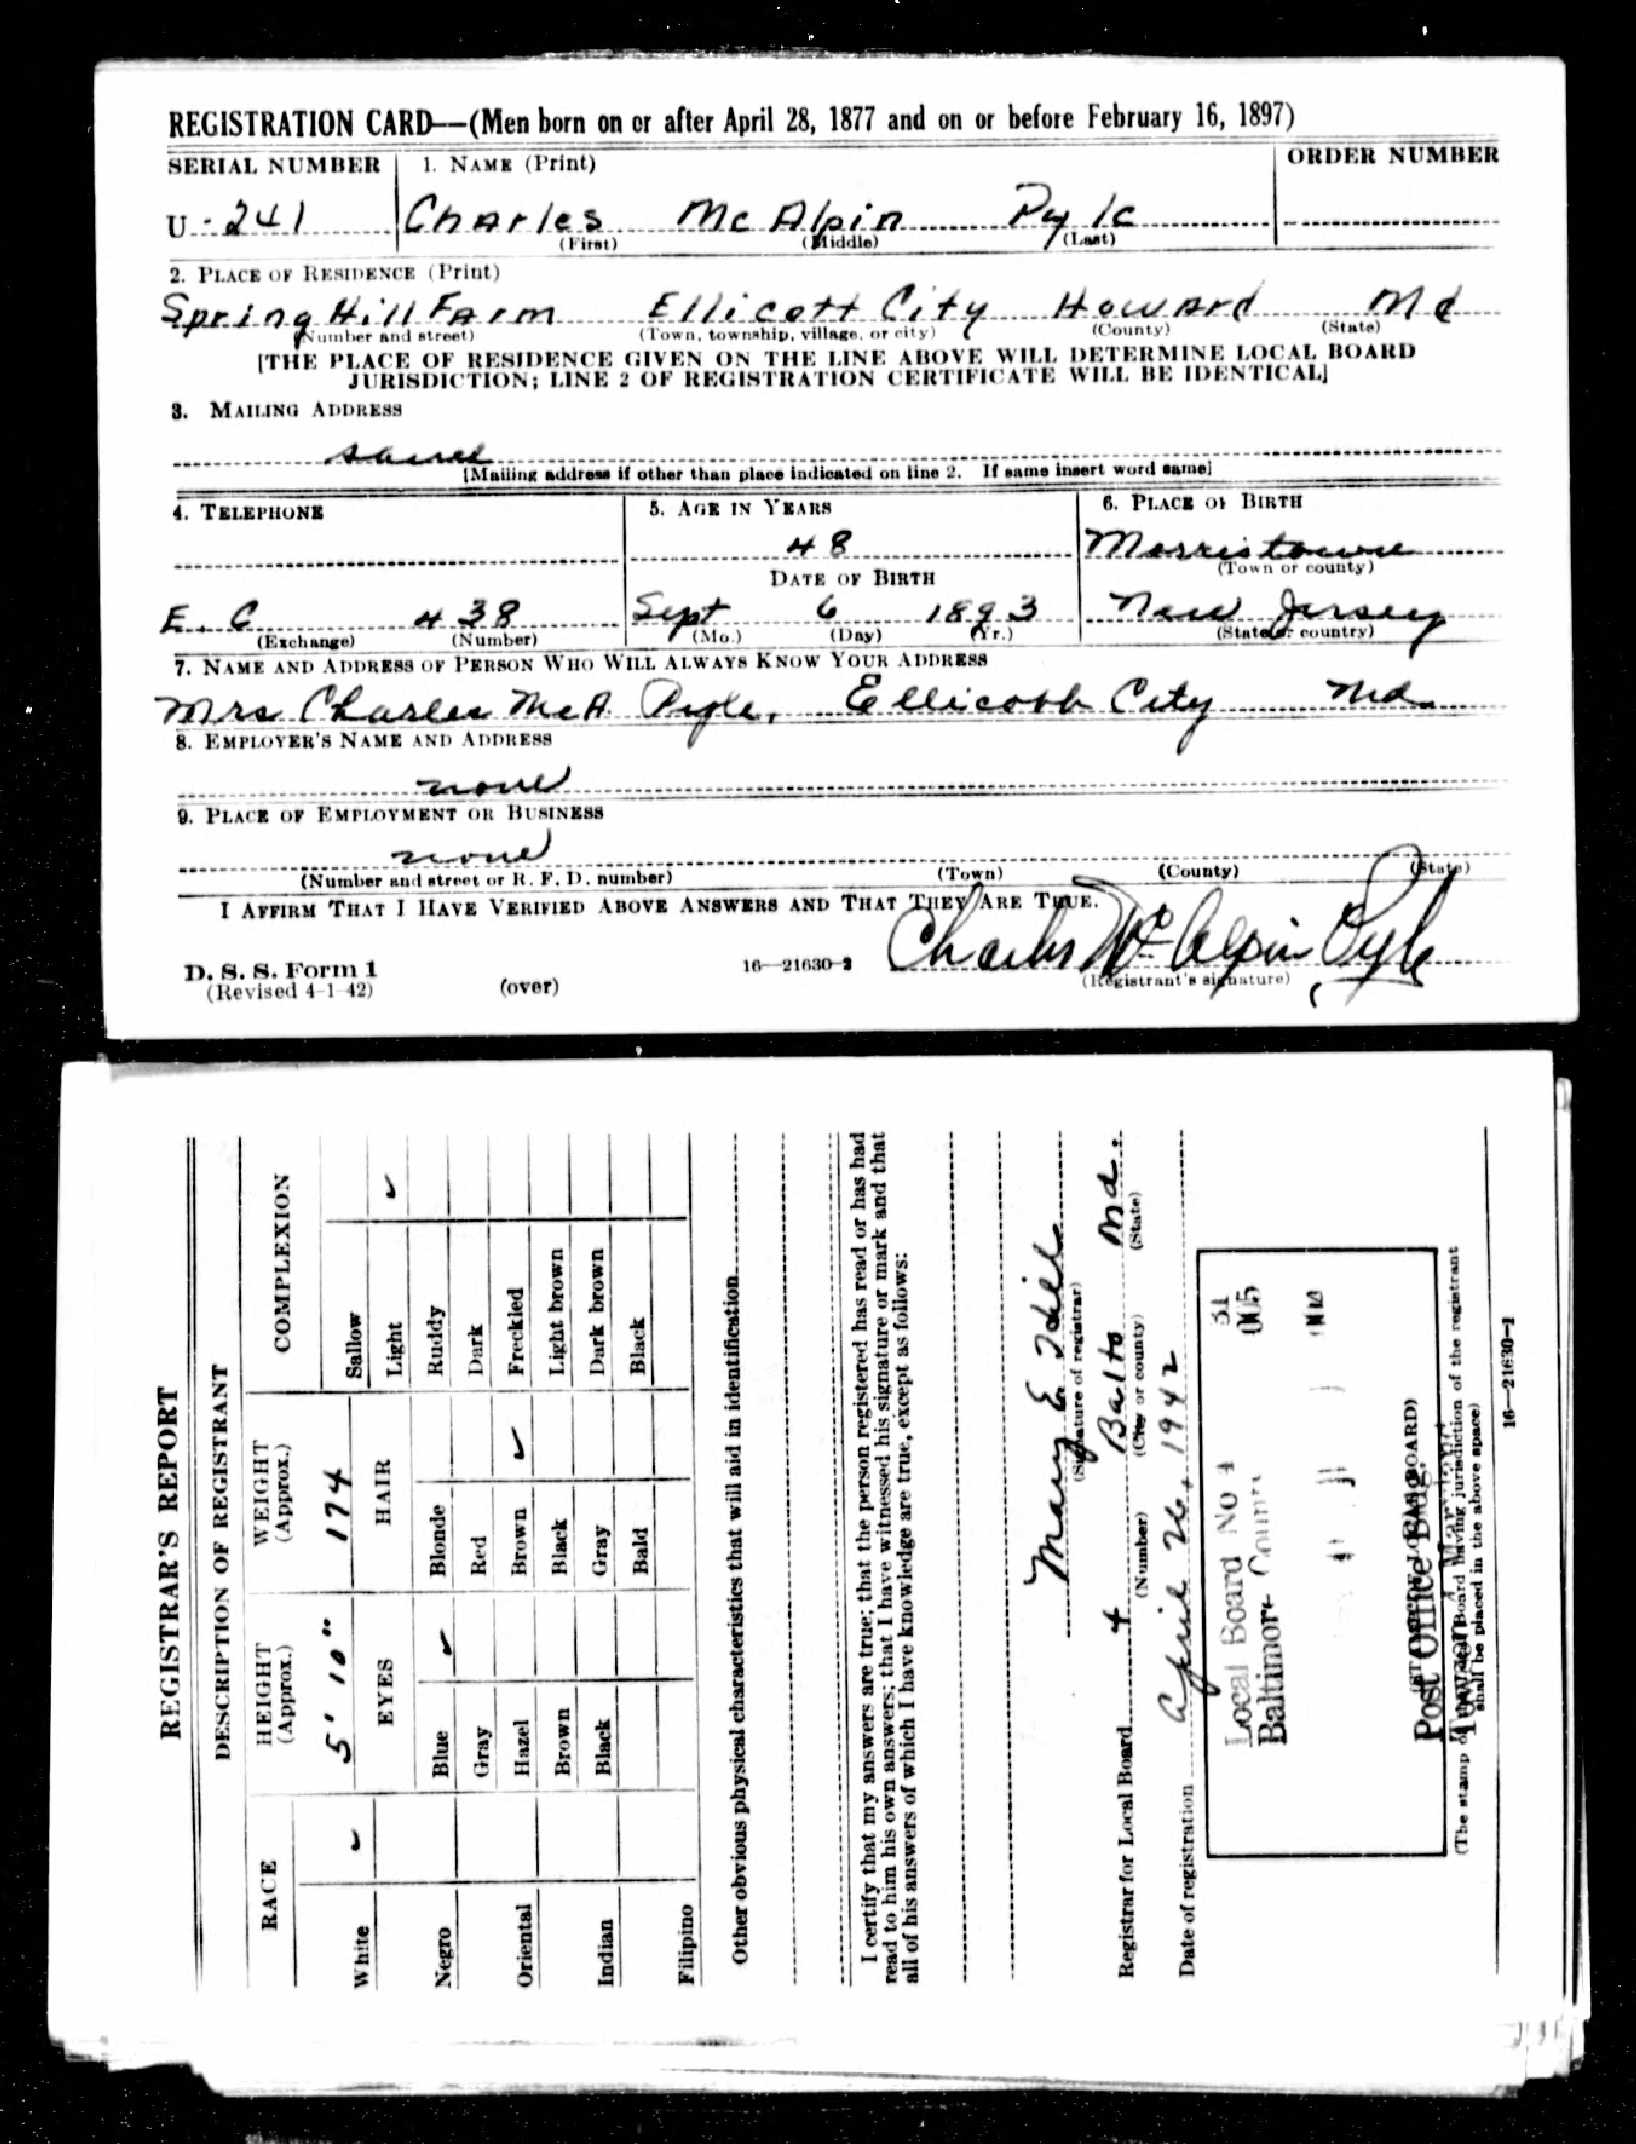 REGISTRATION CARD—(Men born on or after April 28, 1877 and on or before February 16, 1897)
SERIAL NUMBER 1. NAME (Print) ORDER NUMBER
U-241 Charles McAlpin Pyle
(First) (Middle) (Last)
2. PLACE OF RESIDENCE (Print)
Spring Hill Farm Ellicott City Howard Md
(Number and street) (Town, township, village, or city) (County) (State)
[THE PLACE OF RESIDENCE GIVEN ON THE LINE ABOVE WILL DETERMINE LOCAL BOARD
JURISDICTION; LINE 2 OF REGISTRATION CERTIFICATE WILL BE IDENTICAL]
3. MAILING ADDRESS
same
[Mailing address if other than place indicated on line 2. If same insert word same]
4. TELEPHONE 5. AGE IN YEARS 6. PLACE OF BIRTH
48 Morristown
DATE OF BIRTH (Town or county)
E. C 438 Sept 6 1893 New Jersey
(Exchange) (Number) (Mo.) (Day) (Yr.) (State or country)
7. NAME AND ADDRESS OF PERSON WHO WILL ALWAYS KNOW YOUR ADDRESS
Mrs Charles McA Pyle, Ellicott City Md.
8. EMPLOYER'S NAME AND ADDRESS
none
9. PLACE OF EMPLOYMENT OR BUSINESS
none
(Number and street or R. F. D. number) (Town) (County) (State)
I AFFIRM THAT I HAVE VERIFIED ABOVE ANSWERS AND THAT THEY ARE TRUE.
Charles McAlpin Pyle
D. S. S. Form 1 16—21630-2 (Registrant's signature)
(Revised 4-1-42) (over)
REGISTRAR'S REPORT
DESCRIPTION OF REGISTRANT
RACE HEIGHT (Approx.) WEIGHT (Approx.) COMPLEXION
White ✓ 5' 10" 174 Sallow
EYES HAIR Light ✓
Negro Blue ✓ Blonde Ruddy
Gray Red Dark
Oriental Hazel Brown ✓ Freckled
Brown Black Light brown
Indian Black Gray Dark brown
Bald Black
Filipino
Other obvious physical characteristics that will aid in identification
I certify that my answers are true; that the person registered has read or has had
read to him his own answers; that I have witnessed his signature or mark and that
all of his answers of which I have knowledge are true, except as follows:
Mary E.
(Signature of registrar)
Registrar for Local Board 4 Balto Md.
(Number) (City or county) (State)
Date of registration April 26, 1942
Local Board No 4 31
Baltimore County 005
(STAMP OF LOCAL BOARD)
Post Office Bldg.
Towson, Maryland
(The stamp of the Local Board having jurisdiction of the registrant
shall be placed in the above space)
16—21630-1